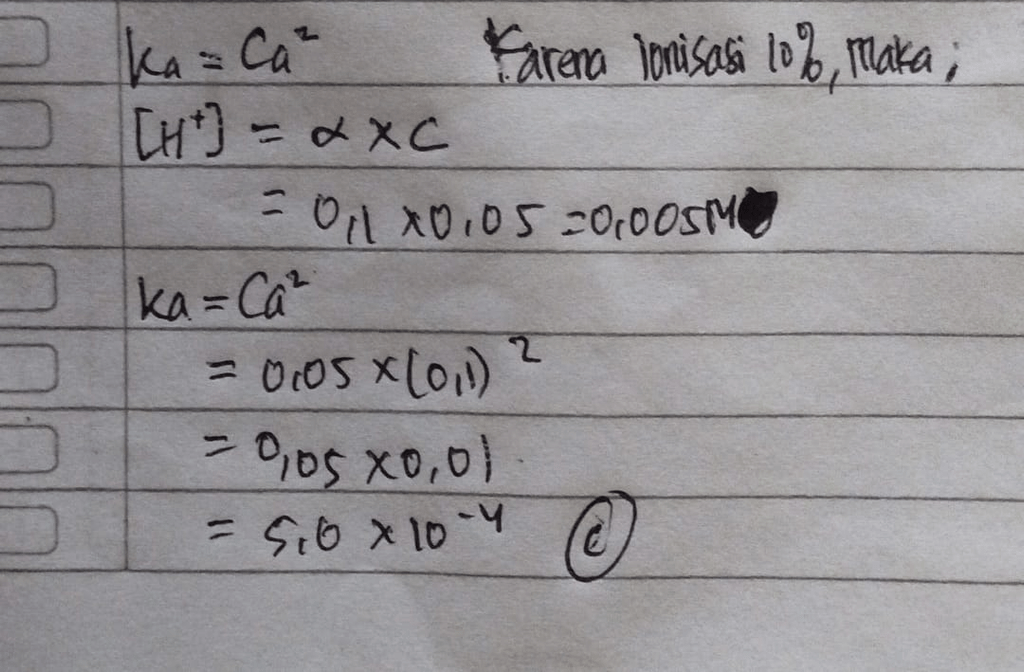 Ka = Cα² Karena ionisasi 10%, maka;
[H⁺] = α × C
= 0,1 × 0,05 = 0,005 M
Ka = Cα²
= 0,05 × (0,1)²
= 0,05 × 0,01
= 5,0 × 10⁻⁴ (c)